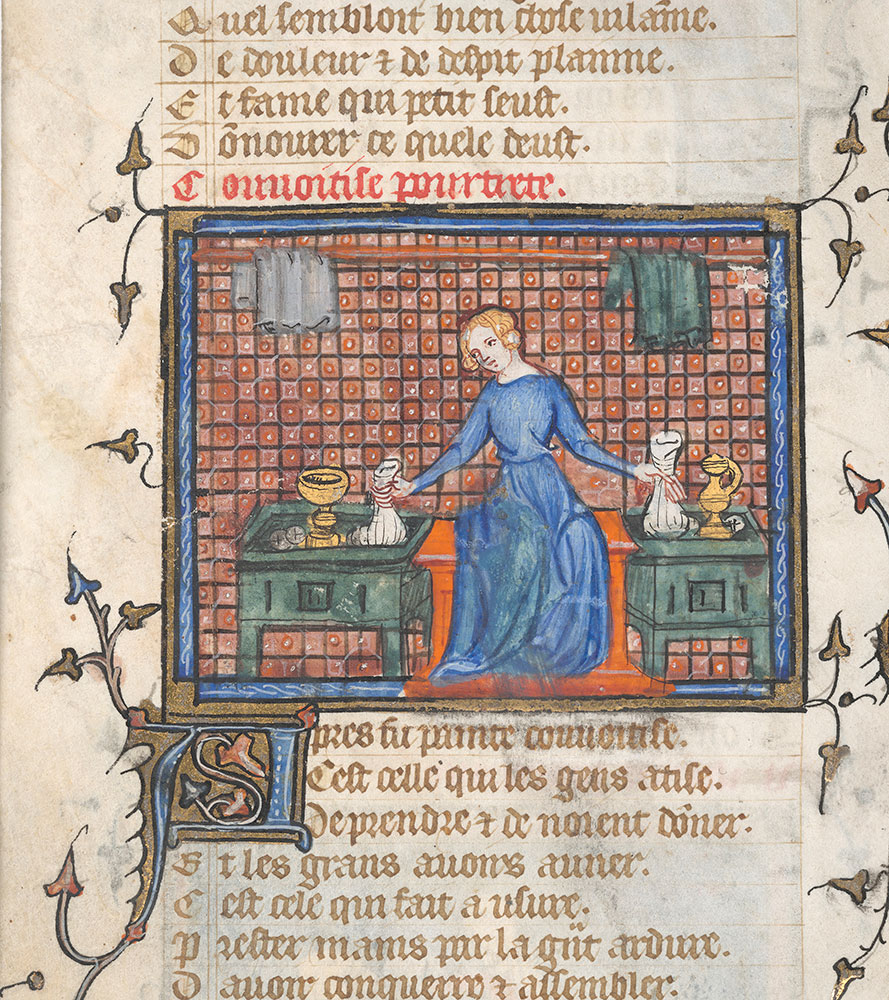 Quel sembloit bien chose uilaīne.
De douleur ⁊ de despit plainne.
Et fame qui petit seust.
Dōnourer ce quele deust.
Couuoitise pourtrete.
Apres fu painte couuoitise.
Cest celle qui les gens atise.
De prendre ⁊ de noient dōner.
Et les grans auoirs auner.
Cest cele qui fait a usure.
Prester mains por la gñt ardure.
Dauoir conquerre ⁊ assembler.